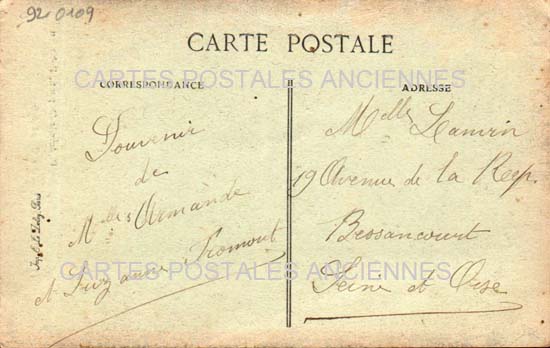 92-0109
CARTE POSTALE
CARTES POSTALES ANCIENNES
CORRESPONDANCE
ADRESSE
Souvenir
de
Melles Armande
et Suzanne Promout
Melle Lamirn
19 Avenue de la Rep.
Bessancourt
Seine et Oise
CARTES POSTALES ANCIENNES